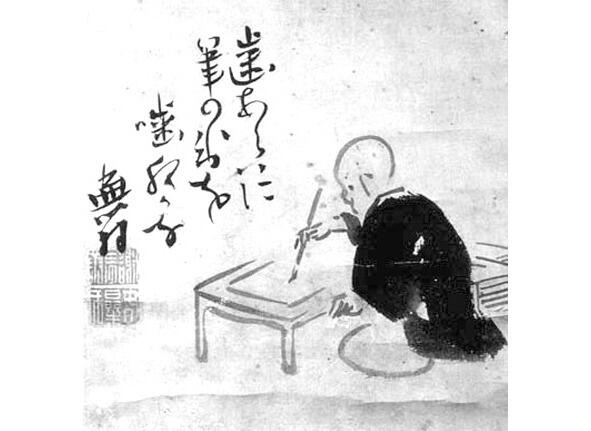 歯あらはに
筆の氷を
噛夜かな
蕪村